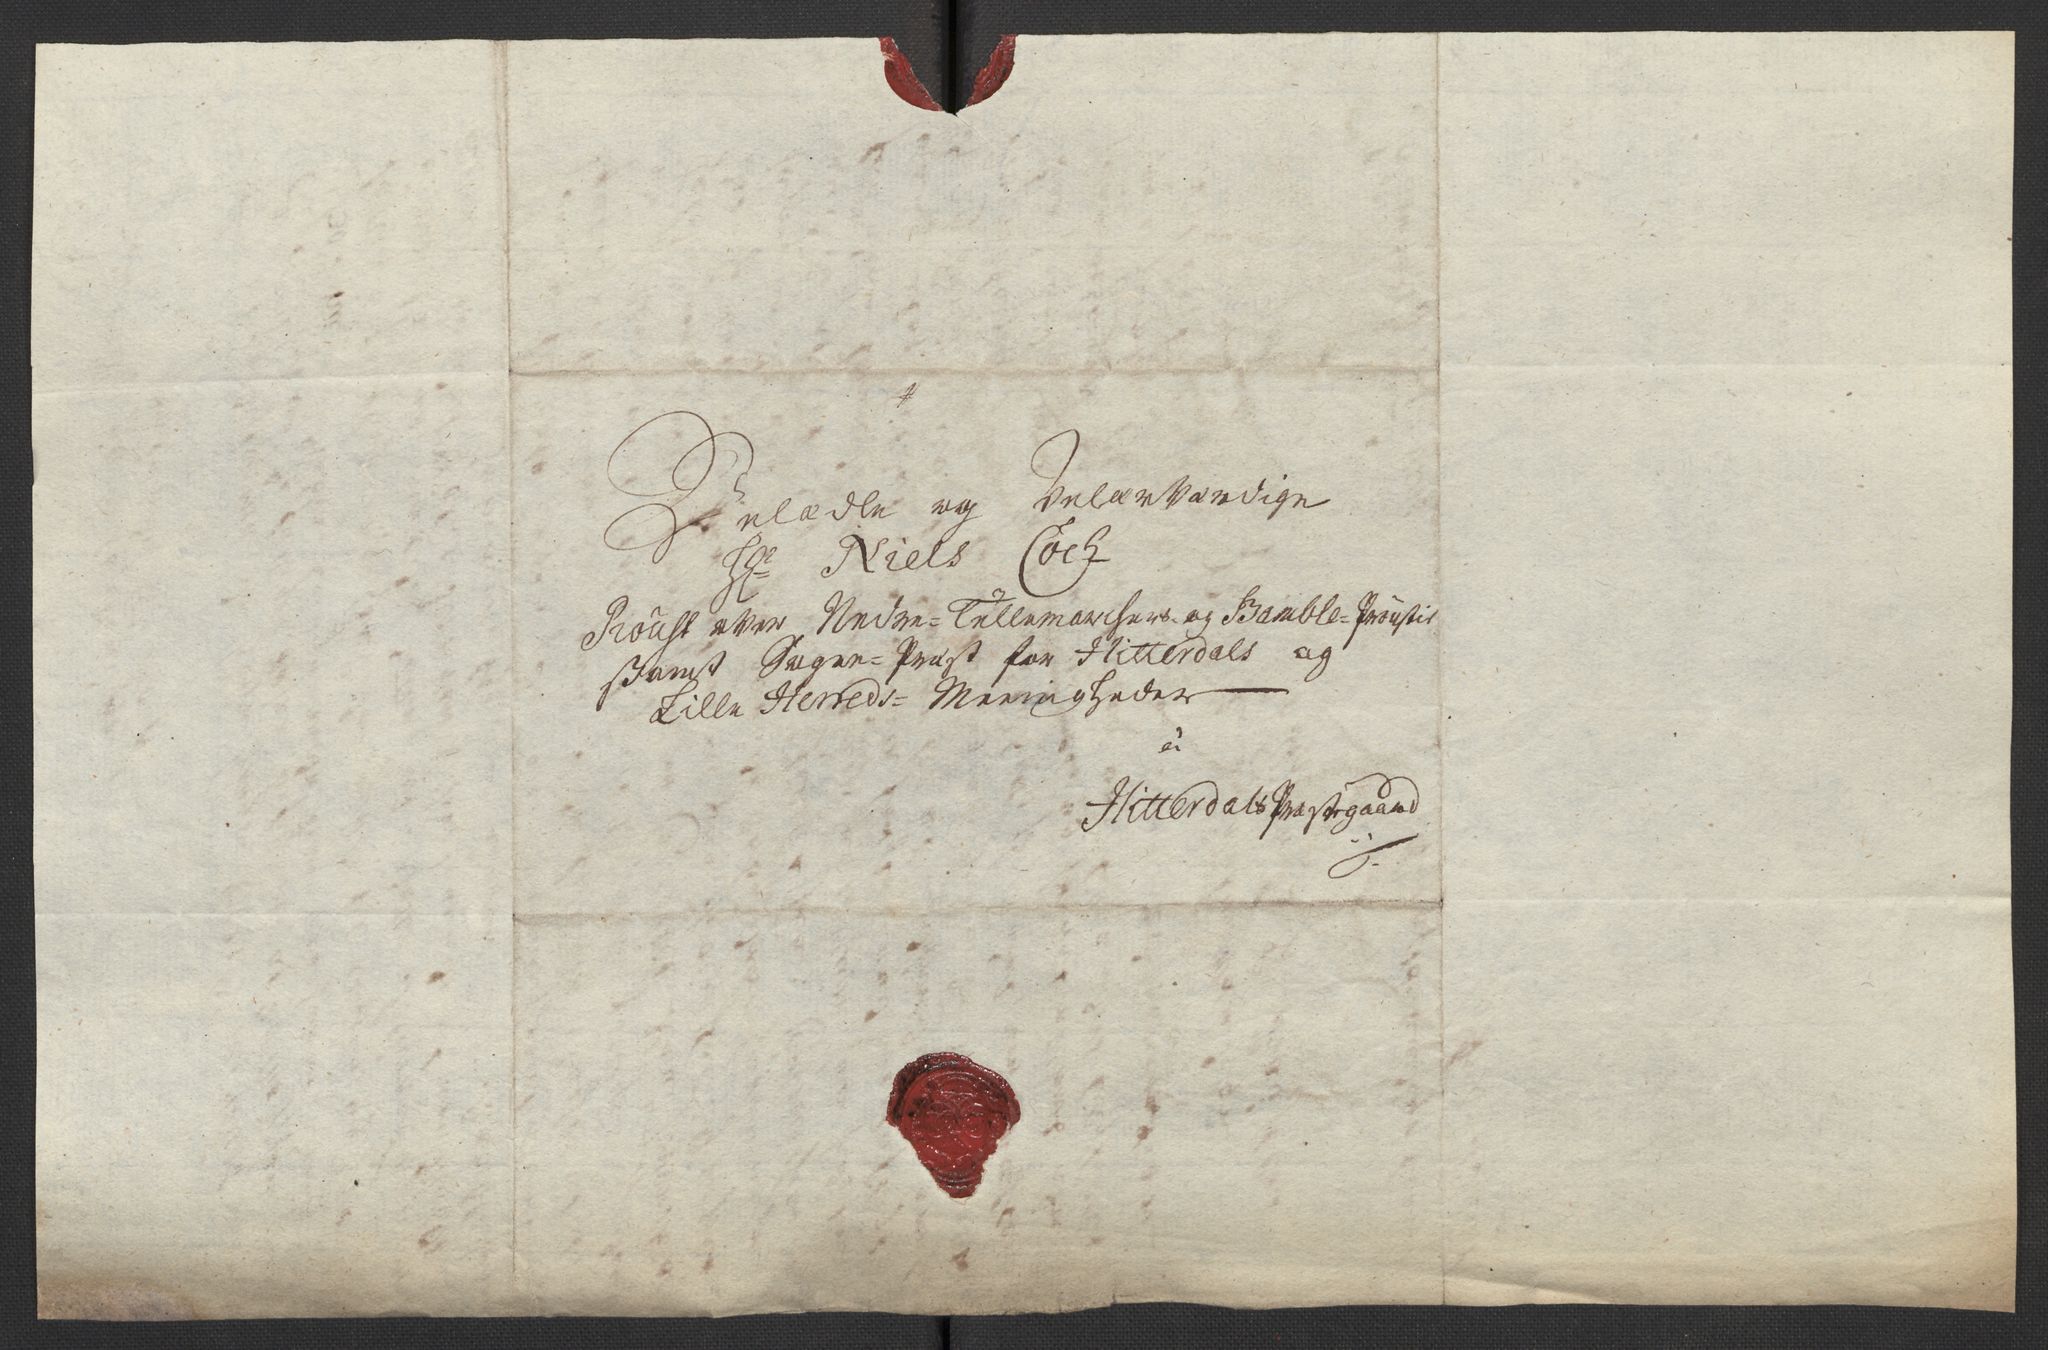 Velædle og Velærværdige
Hr Niels Coch
Proust over Nedre=Tellemarchens og Bamble=Proustie
samt Sogne=Præst for Hitterdals og
Lille Herreds= Meenigheder
à
Hitterdals Præstegaard